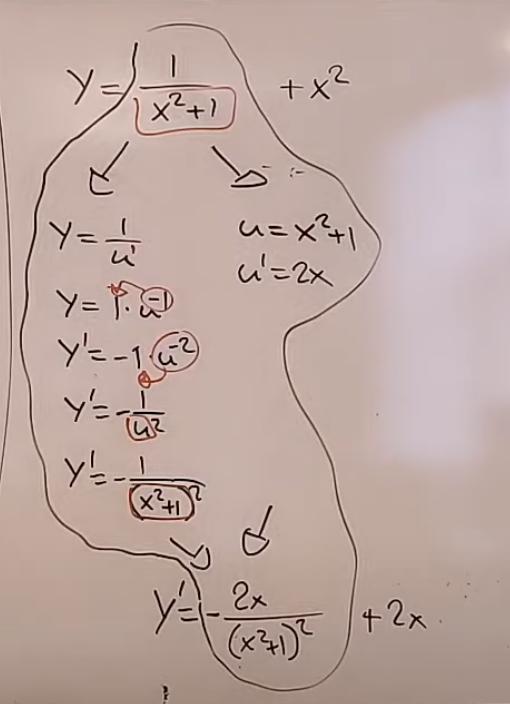 y = 1/(x²+1) + x²
y = 1/u
u = x²+1
u' = 2x
y = 1·u⁻¹
y' = -1·u⁻²
y' = -1/u²
y' = -1/(x²+1)²
y' = -2x/(x²+1)² + 2x